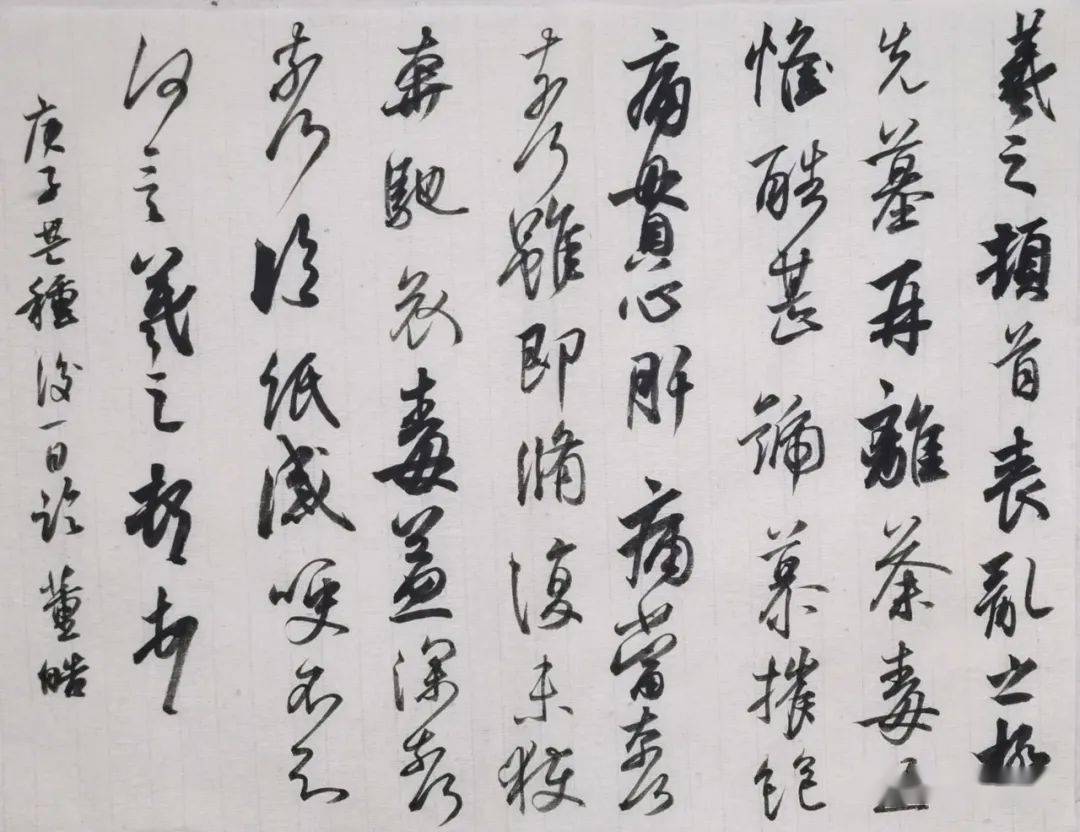 羲之頓首喪亂之極
先墓再離荼毒追
惟酷甚號慕摧絕
痛貫心肝痛當奈何
奈何雖即脩復未獲
奔馳哀毒益深奈何
奈何臨紙感哽不知
何言羲之頓首
庚子芒種後一日臨 董皓